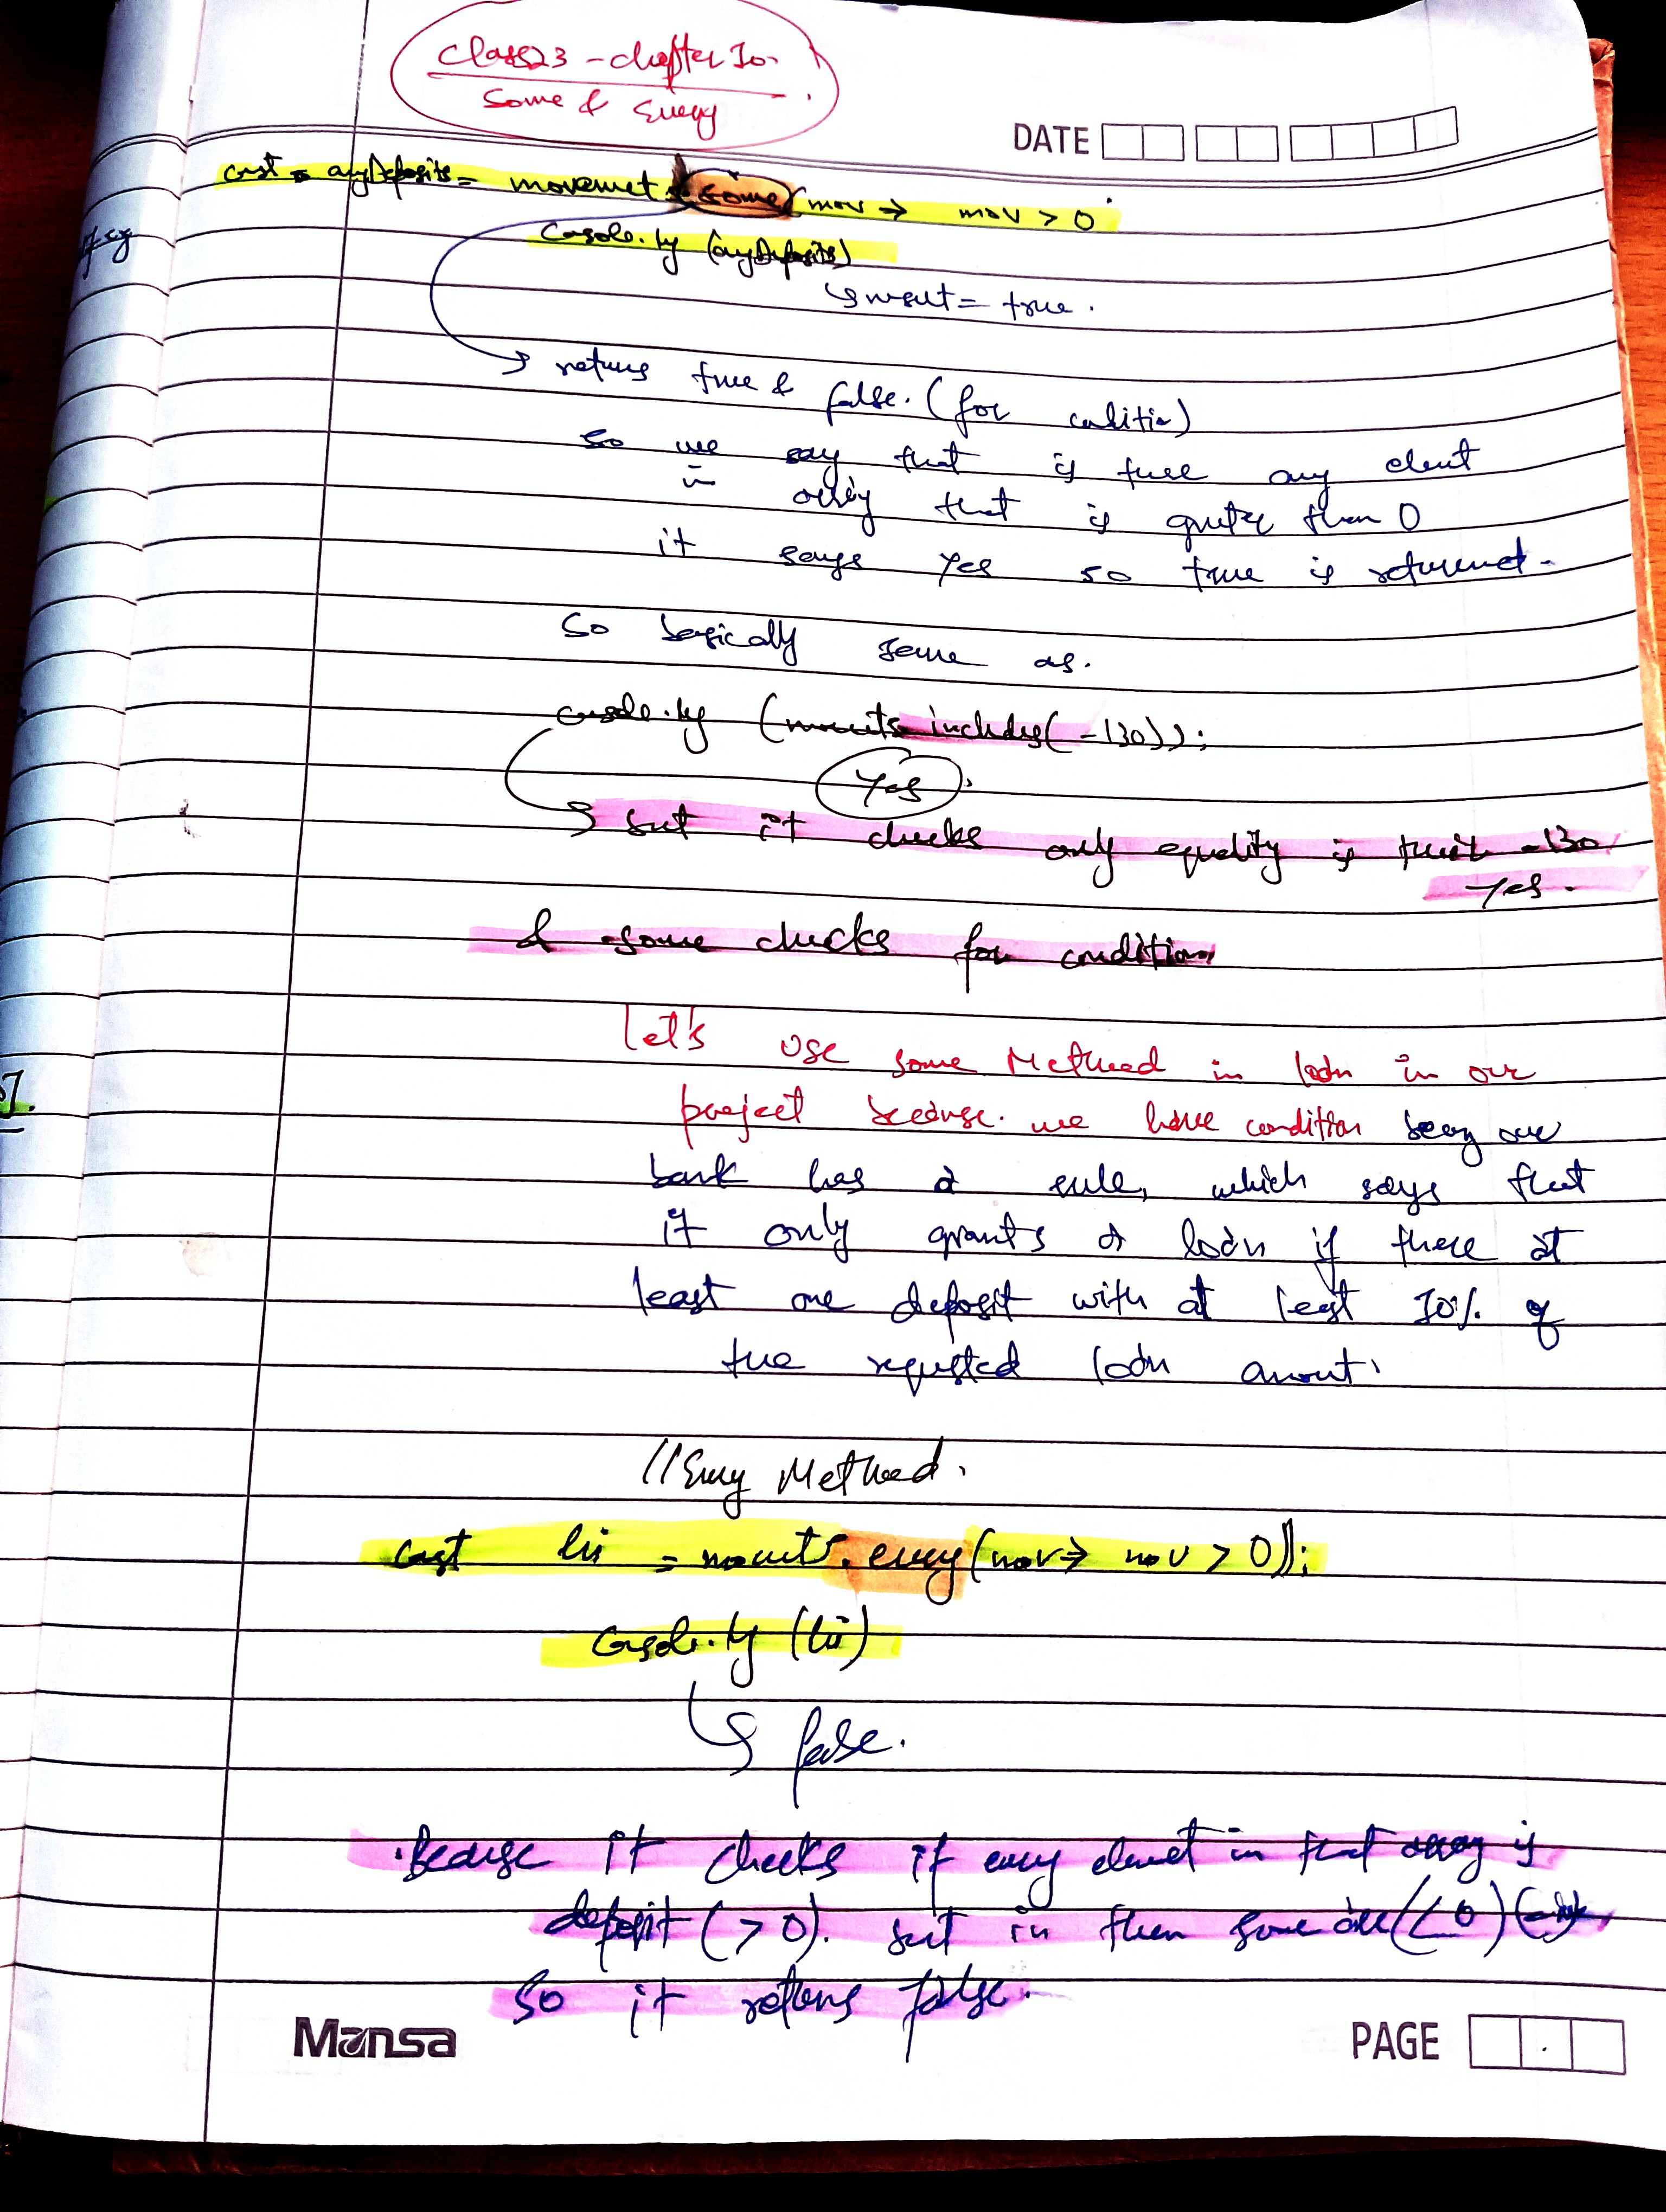 Class 23 - chapter 10.
Some & Every
DATE
const = anyDeposits = movemet . some(mov → mov > 0
Console.log (anyDeposits)
result = true.
→ returns true & false. (for condition)
so we say that is there any elemt
in array that is greater than 0
it says yes so true is returned.
So basically same as.
console.log (movements includes(-130));
Yes
but it checks only equality is there -130
yes.
& some checks for condition
Let's use some Method in loan in our
project because. we have condition being our
bank has a rule, which says that
it only grants a loan if there at
least one deposit with at least 10% of
the requested loan amount.
//Every Method.
const lii = movemts.every(mov → mov > 0);
console.log (lii)
↳ false.
.Because it checks if every elemet in that array is
deposit (>0). but in them some are (<0)
So it returns false.
Mansa
PAGE